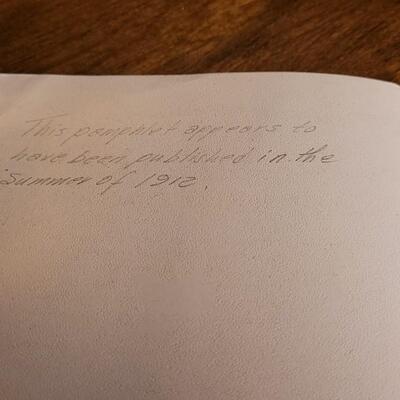 This pamphlet appears to
have been published in the
Summer of 1912.